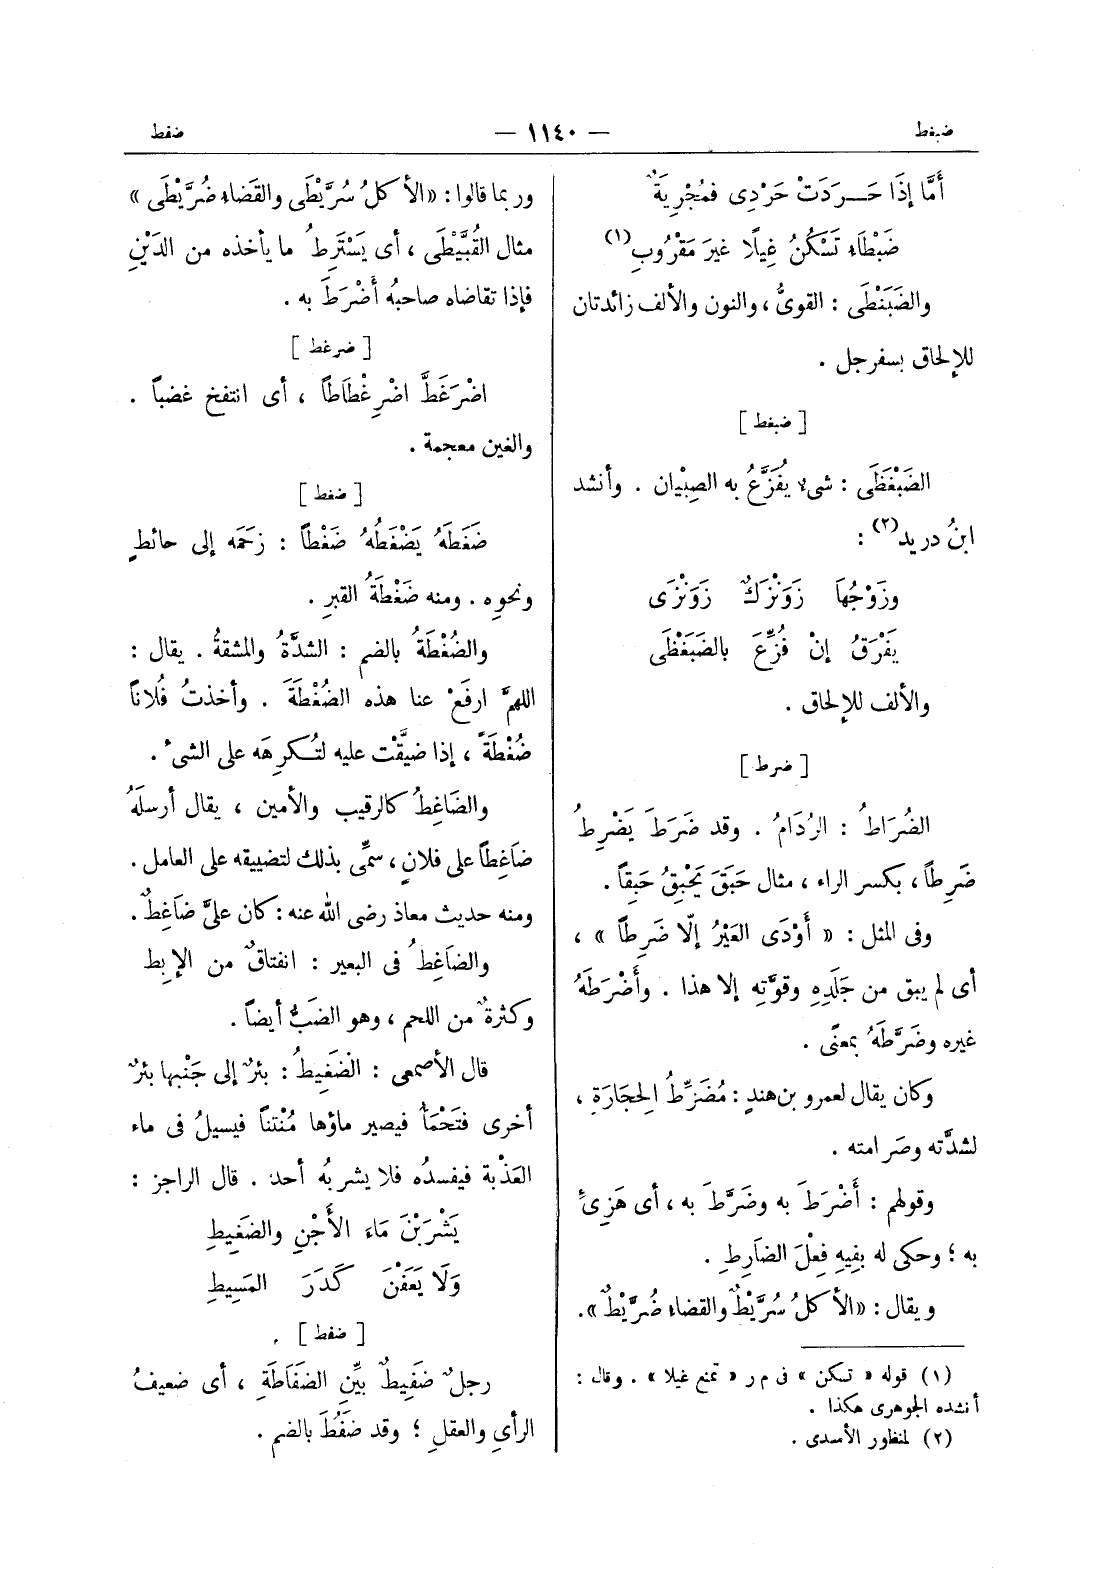 ضبغط
— ١١٤٠ —
ضفط
أَمَّا إِذَا حَـرَدَتْ حَرْدِى فَمُجْرِيَةٌ
ضَبْطَاءُ تَسْكُنُ غِيلًا غيرَ مَقْرُوبِ(١)
والضَبَنْطَى : القوىُّ ، والنون والألف زائدتان
للإلحاق بسفرجل .
[ ضبغط ]
الضَبَغْطَى : شىء يُفَزَّعُ به الصِبْيان . وأنشد
ابنُ دريد(٢) :
وزَوْجُهَا زَوَنْزَكٌ زَوَنْزَى
يَفْرَقُ إِنْ فُزِّعَ بالضَبَغْطَى
والألف للإلحاق .
[ ضرط ]
الضُرَاطُ : الرُدَامُ . وقد ضَرَطَ يَضْرِطُ
ضَرِطاً ، بكسر الراء ، مثال حَبَقَ يَحْبِقُ حَبِقاً .
وفى المثل : « أَوْدَى العَيْرُ إلّا ضَرِطاً » ،
أى لم يبق من جَلَدِهِ وقوّتِه إلا هذا . وأَضْرَطَهُ
غيره وضَرَّطَهُ بمعنًى .
وكان يقال لعمرو بن هندٍ : مُضَرِّطُ الحِجَارَةِ ،
لشدَّته وصَرامته .
وقولهم : أَضْرَطَ به وضَرَّطَ به ، أى هَزِئَ
به ؛ وحكى له بِفِيهِ فِعْلَ الضَارِطِ .
ويقال : «الأكلُ سُرَّيْطٌ والقضاء ضُرَّيْطٌ».
(١) قوله « تسكن » فى م ر « تمنع غيلا » . وقال :
أنشده الجوهرى هكذا .
(٢) لمنظور الأسدى .
وربما قالوا : «الأكلُ سُرَّيْطَى والقَضاء ضُرَّيْطَى»
مثال القُبَّيْطَى ، أى يَسْتَرِطُ ما يأخذه من الدَيْنِ
فإذا تقاضاه صاحبُه أَضْرَطَ به .
[ ضرغط ]
اضْرَغَطَّ اضْرِغْطَاطاً ، أى انتفخ غضباً .
والغين معجمة .
[ ضغط ]
ضَغَطَهُ يَضْغَطُهُ ضَغْطاً : زَحَمَه إلى حائطٍ
ونحوِه . ومنه ضَغْطَةُ القبرِ .
والضُغْطَةُ بالضم : الشدَّةُ والمشقةُ . يقال :
اللهمَّ ارفَعْ عنا هذه الضُغْطَةَ . وأخذتُ فُلاناً
ضُغْطَةً ، إذا ضيَّقْت عليه لتُكرِهَه على الشىء .
والضَاغِطُ كالرقيب والأمين ، يقال أرسلَهُ
ضاَغِطاً على فلانٍ ، سمِّى بذلك لتضييقه على العامل .
ومنه حديث معاذ رضى الله عنه : كان علىَّ ضاَغِطٌ .
والضاَغِطُ فى البعير : انفتاقٌ من الإبِط
وكثرةٌ من اللحم ، وهو الضَبُّ أيضاً .
قال الأصمعى : الضَغِيطُ : بئرٌ إلى جَنْبها بئرٌ
أخرى فتَحْمَأُ فيصير ماؤها مُنْتناً فيسيلُ فى ماء
العَذْبة فيفسدُه فلا يشربُه أحد . قال الراجز :
يَشْرَبْنَ مَاءَ الأَجْنِ والضَغِيطِ
وَلَا يَعَفْنَ كَدَرَ المَسِيطِ
[ ضفط ] .
رجلٌ ضَفِيطٌ بَيِّنِ الضَفَاطَةِ ، أى ضعيفُ
الرأىِ والعقلِ ؛ وقد ضَفُطَ بالضم .